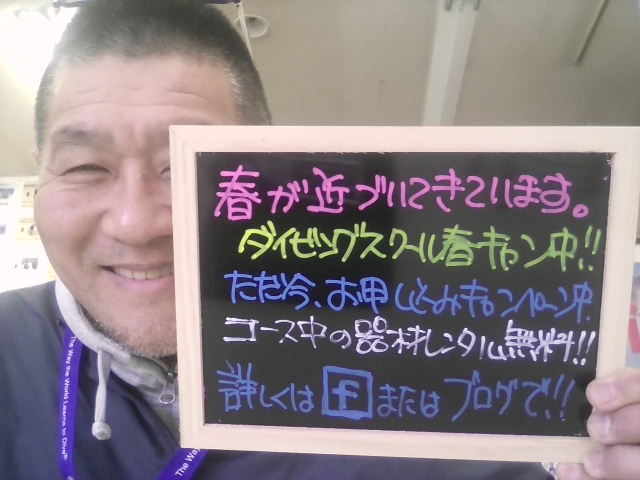 春が近づいてきています。
ダイビングスクール春キャン中!!
ただ今、お申し込みキャンペーン中
コース中の器材レンタル無料!!
詳しくは f またはブログで!!
The Way the World Learns to Dive®
The Way